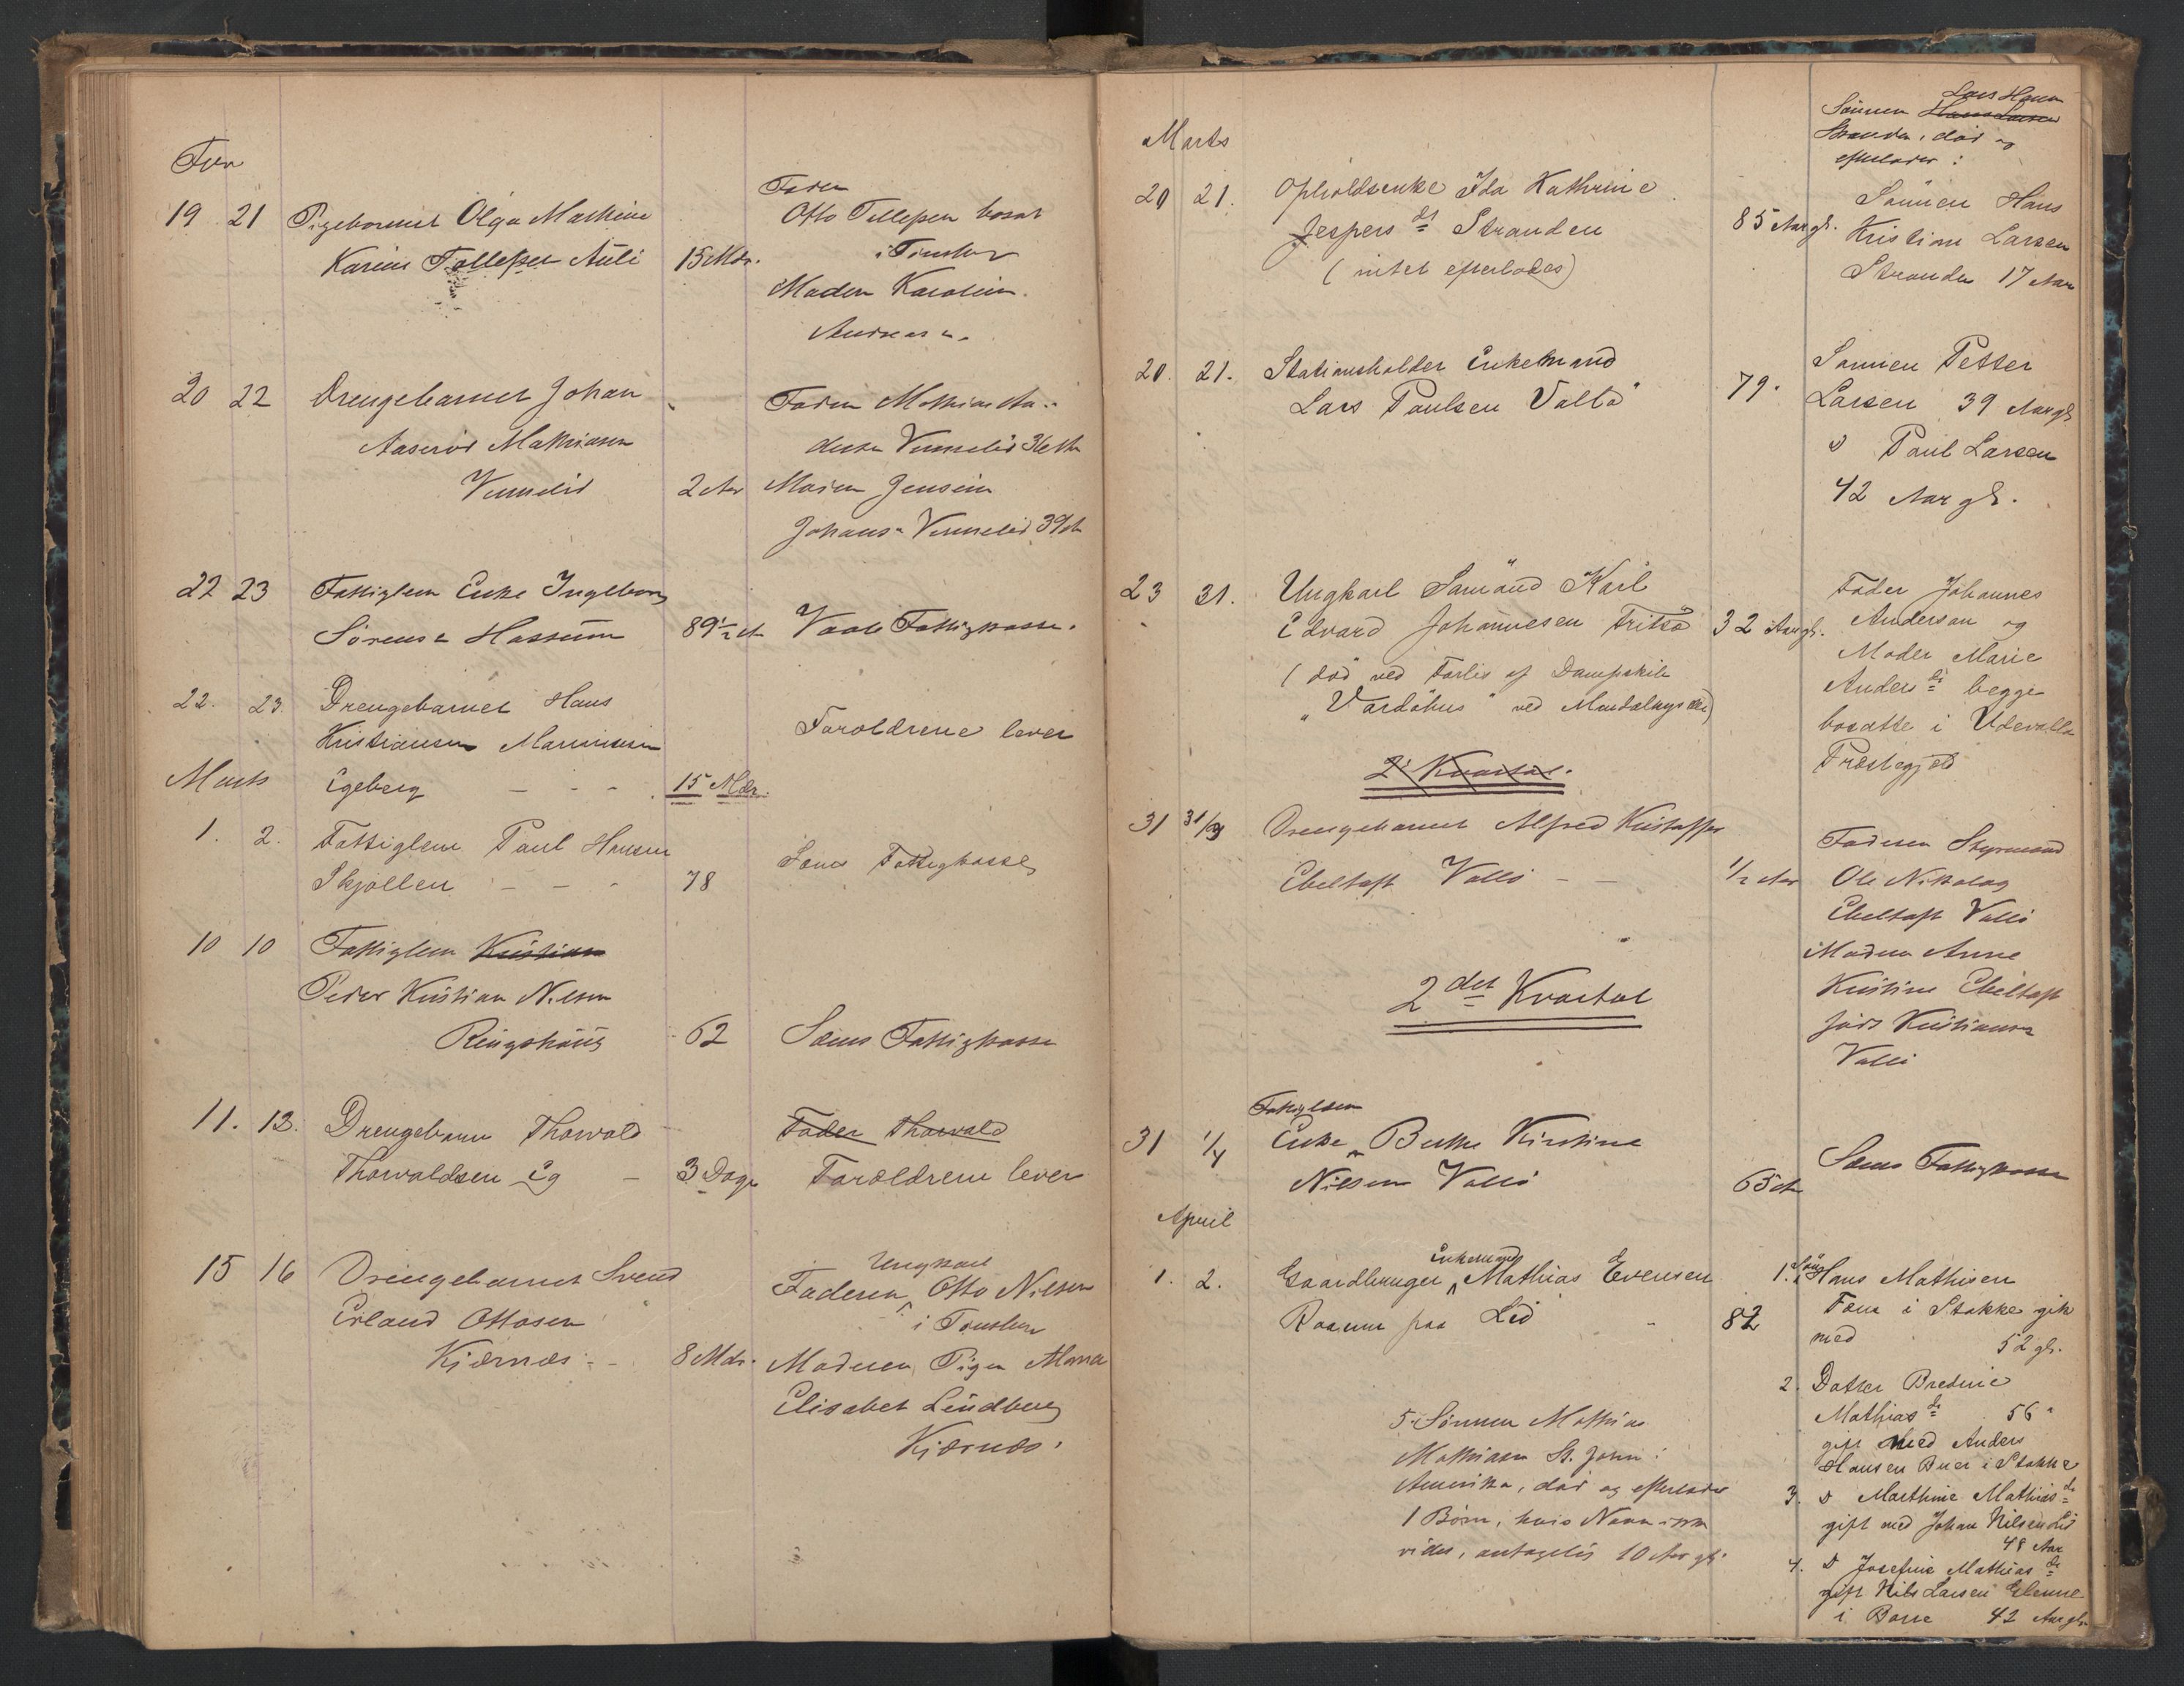 Febr
19 21 Pigebarnet Olga Mathine
Karine Tollefsen Auli 15 Mdr.
Faderen
Otto Tollefsen bosat
i Tønsberg
Moderen Karoline
Andreas
20 22 Drengebarnet Johan
Aaserød Mathiasen
Vemelid 2 Aar
Faderen Mathias An-
dersen Vemelid 36 Aar
Moderen Jensine
Johans Vemelid 39 Aar
22 23 Fattiglem Enke Ingeborg
Sørens Hassum 89½ A Vaale Fattigkasse.
22. 23. Drengebarnet Hans
Kristiansen
Egeberg - - - 15 Mdr.
Foroldrene lever
Marts
1. 2. Fattiglem Paul Hansen
Skjøllen - - - 78
Sems Fattigkasse
10 10 Fattiglem Kristian
Peder Kristian Nilsen
Ringshaug 62 Sems Fattigkasse
11. 12. Drengebarn Thorvald
Thorvaldsen Eg - 3 Dage
Fader Thorvald
Foroldrene lever
15 16 Drengebarnet Svend
Erland Ottosen
Kjærnæs - - 8 Mdr.
Ungkarl
Faderen Otto Nilsen
i Tønsberg
Moderen, Pigen Alma
Elisabet Lindberg
Kjærnæs.
Marts
20 21. Opholdsenke Ida Kathrine
Jespers dt Stranden 85 Aar gl.
(intet efterlades)
Lars Hansen
Sønnen Hans Larsen
Stranden, død og
efterlader:
Sønnen Hans
Kristian Larsen
Stranden 17 Aar
20. 21. Stationsholder Enkemand
Lars Paulsen Vallö 79.
Sønnen Petter
Larsen 39 Aar gl.
" Paul Larsen
42 Aar gl.
23 31. Ungkarl Sømand Karl
Edvard Johannesen Fritsø 32 Aar gl.
(død ved Forlis af Dampskib
"Vardöhus" ved Mandalkysten)
Fader Johannes
Anderson og
Moder Marie
Anders dt begge
bosatte i Udevalla
Præstegjæld
2' Kvartal.
31 31/3 Drengebarnet Alfred Kristoffer
Ebeltoft Vallø - - ½ Aar
Faderen Styrmand
Ole Nikolay
Ebeltoft Vallø
Moderen Anne
Kristine Ebeltoft
født Kristiansen
Vallø
2 det Kvartal
Fattiglem
31 1/4 Enke Berthe Kirstine
Nilsen Vallø 65 A
Sems Fattigkasse
April
Enkemand
1. 2. Gaardbruger Mathias Evensen
Roanne paa Lid 82
1. Søn Hans Mathisen
Fœn i Stokke gift
med 52 gl.
2. Datter Bredine
Mathias dt 56 "
gift med Anders
Hansen Buer i Stokke
3. D Marthine Mathias dt
gift med Johan Nilsen Lid
48 Aar
4. D Josefine Mathias dt
gift Nils Larsen Glenne
i Borre 42 Aar gl.
5. Sønnen Mathias
Mathiasen St. John i
Amerika, død og efterlader
1 Barn, hvis Navn ikke
vides, antagelig 10 Aar gl.